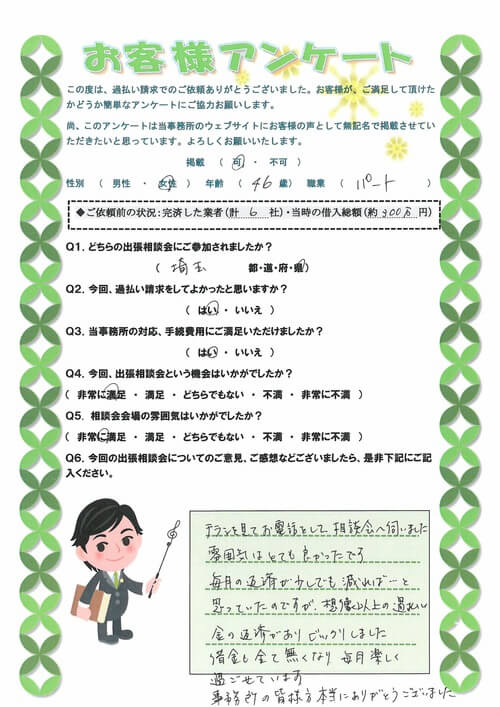 お客様アンケート
この度は、過払い請求でのご依頼ありがとうございました。お客様が、ご満足して頂けた
かどうか簡単なアンケートにご協力お願いします。
尚、このアンケートは当事務所のウェブサイトにお客様の声として無記名で掲載させてい
ただきたいと思っています。よろしくお願いいたします。
掲載 ( 可 ・ 不可 )
性別 ( 男性 ・ 女性 ) 年齢 ( 46 歳) 職業 ( パート )
◆ご依頼前の状況:完済した業者(計 6 社)・当時の借入総額(約 300万 円)
Q1. どちらの出張相談会にご参加されましたか?
( 埼玉 都・道・府・県 )
Q2. 今回、過払い請求をしてよかったと思いますか?
( はい ・ いいえ )
Q3. 当事務所の対応、手続費用にご満足いただけましたか?
( はい ・ いいえ )
Q4. 今回、出張相談会という機会はいかがでしたか?
( 非常に満足 ・ 満足 ・ どちらでもない ・ 不満 ・ 非常に不満 )
Q5. 相談会会場の雰囲気はいかがでしたか?
( 非常に満足 ・ 満足 ・ どちらでもない ・ 不満 ・ 非常に不満 )
Q6. 今回の出張相談会についてのご意見、ご感想などございましたら、是非下記にご記
入ください。
チラシを見てお電話をして相談会へ伺いました
雰囲気はとても良かったです
毎月の返済が少しでも減れば…と
思っていたのですが、想像以上の過払い
金の返済がありビックリしました
借金も全て無くなり毎月楽しく
過ごせています
事務所の皆様方本当にありがとうございました